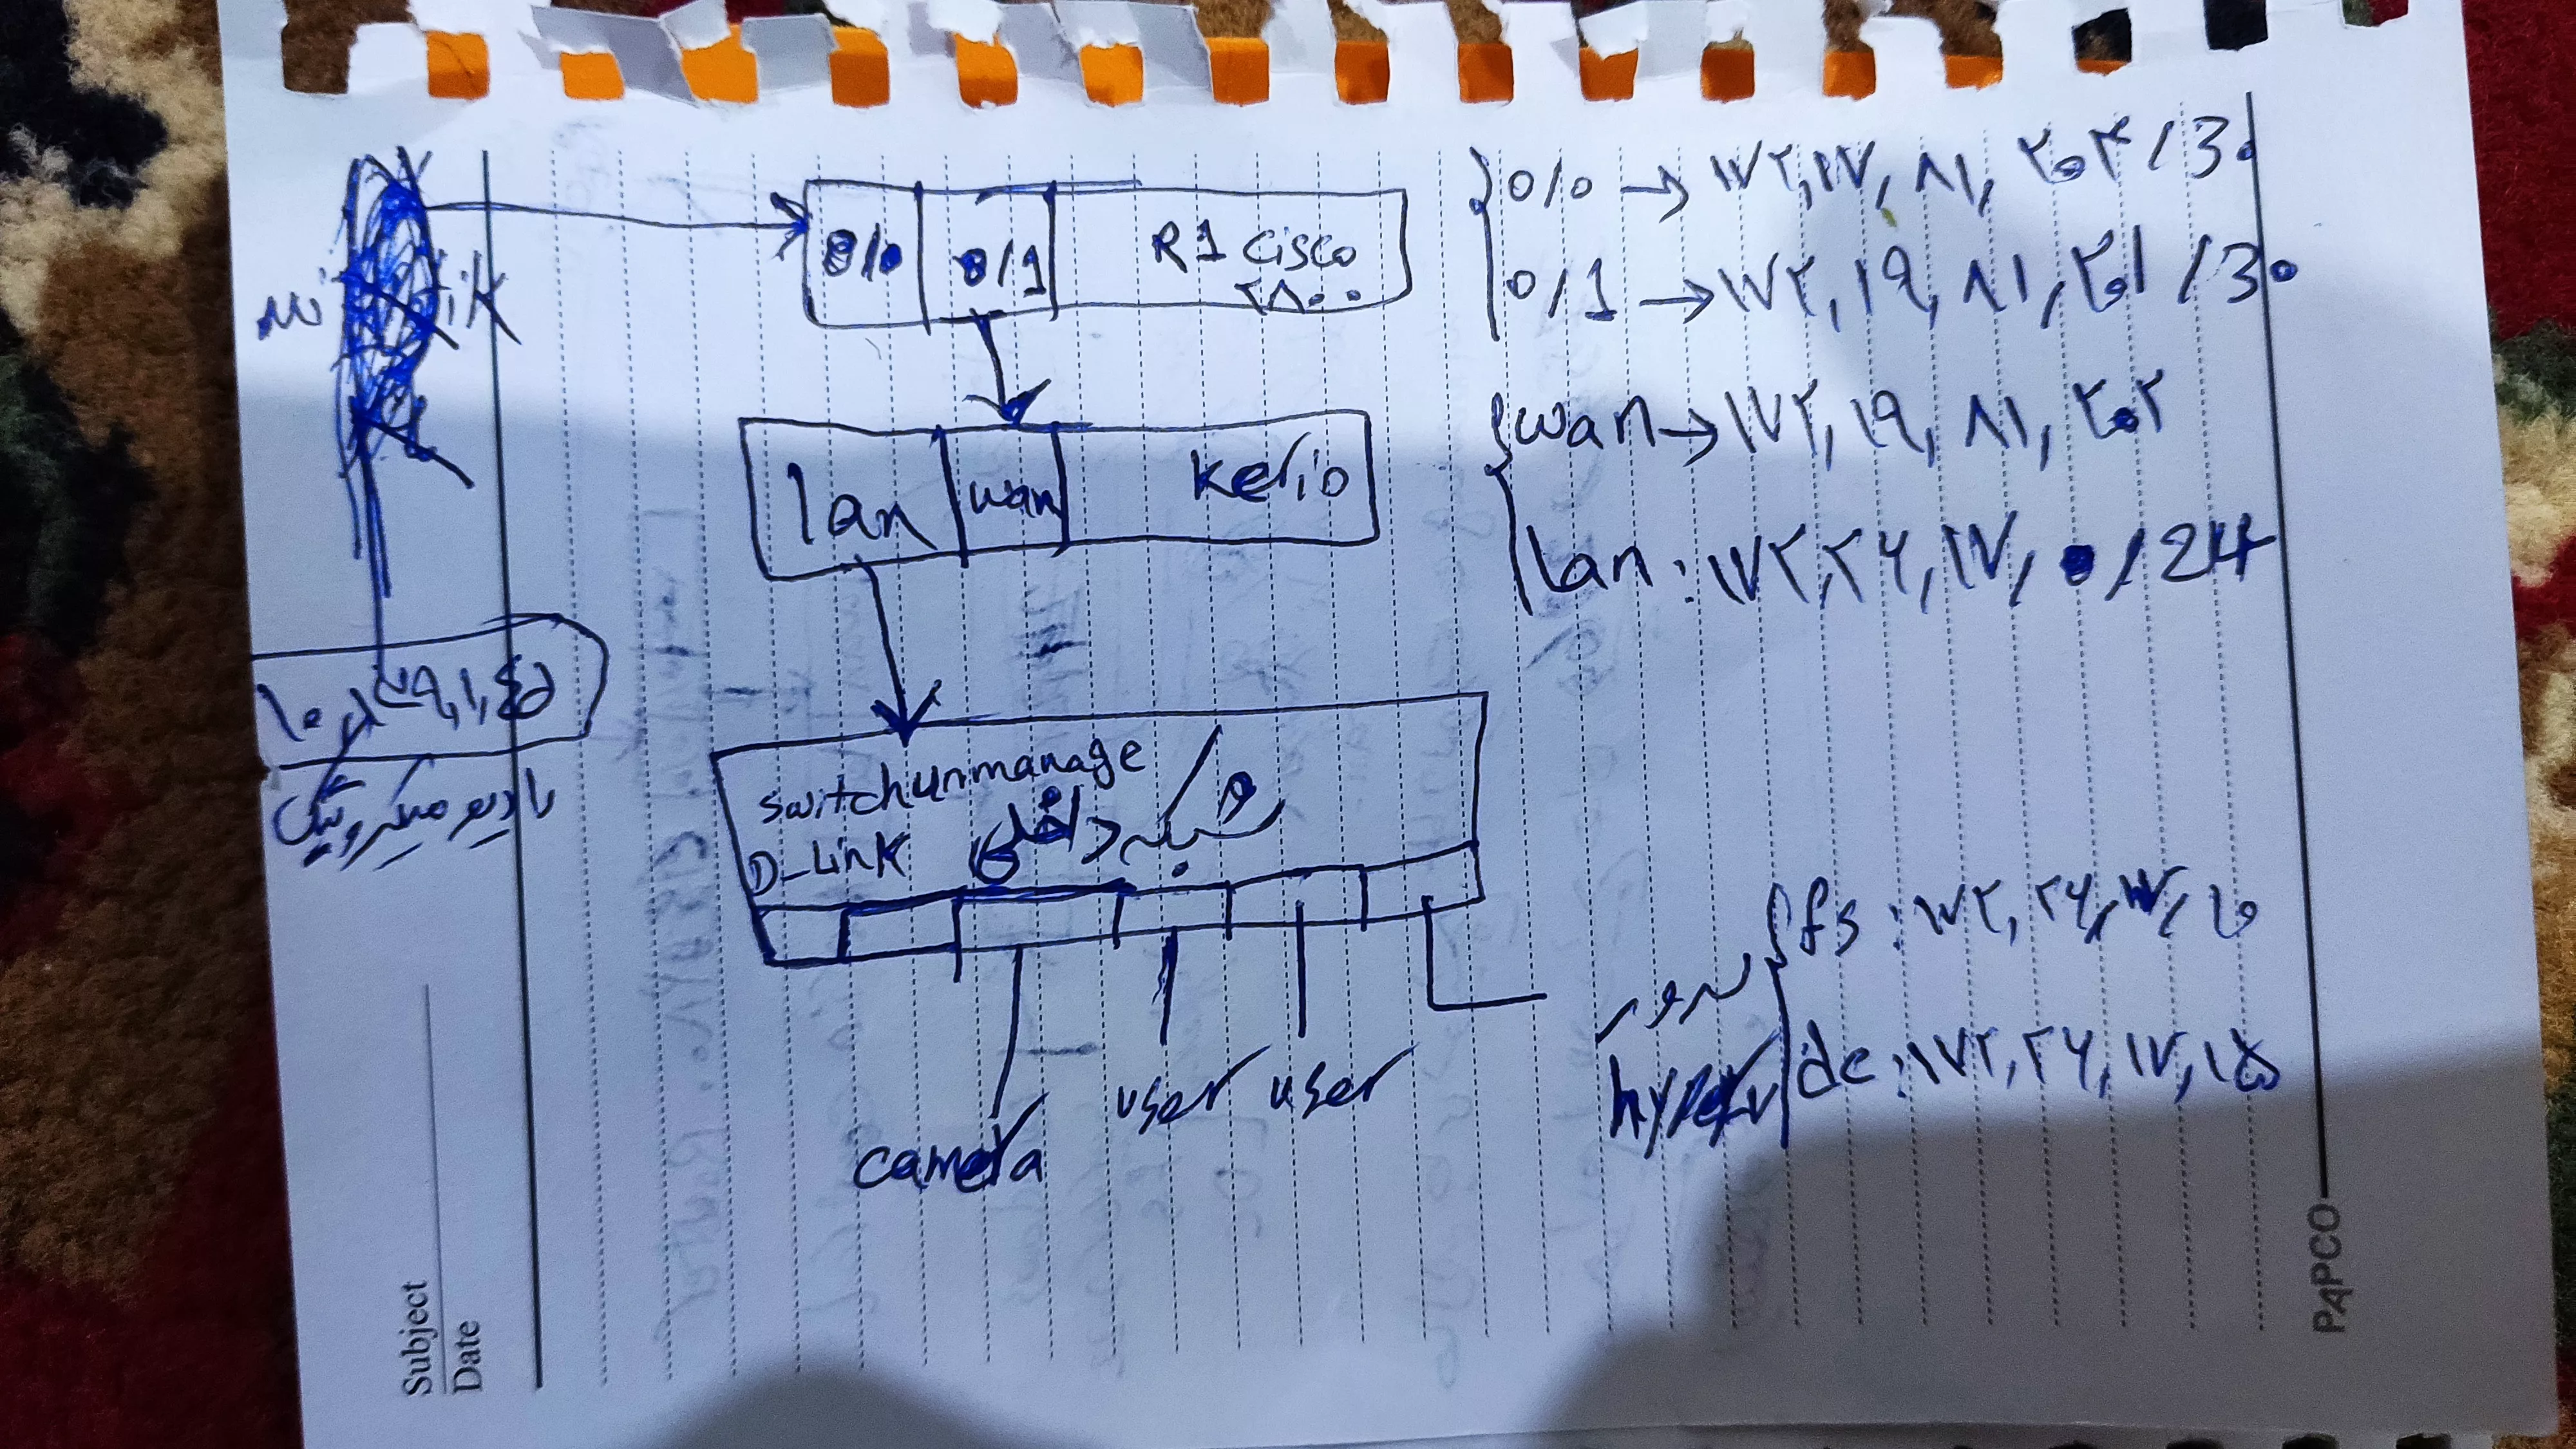 0/0
0/1
R1 cisco
۲۸۰۰
0/0 → ۱۷۲,۱۷,۸۱,۲۰۲/30
0/1 → ۱۷۲,۱۹,۸۱,۲۰۱/30
lan
wan
kerio
wan → ۱۷۲,۱۹,۸۱,۲۰۲
lan: ۱۷۲,۲۶,۱۷,۰/24
رادیو میکروتیک
switch unmanage
D_Link
شبکه داخلی
camera
user
user
سرور
hyperv
fs: ۱۷۲,۲۶,۱۷,۱۰
dc: ۱۷۲,۲۶,۱۷,۱۵
Subject
Date
PAPCO